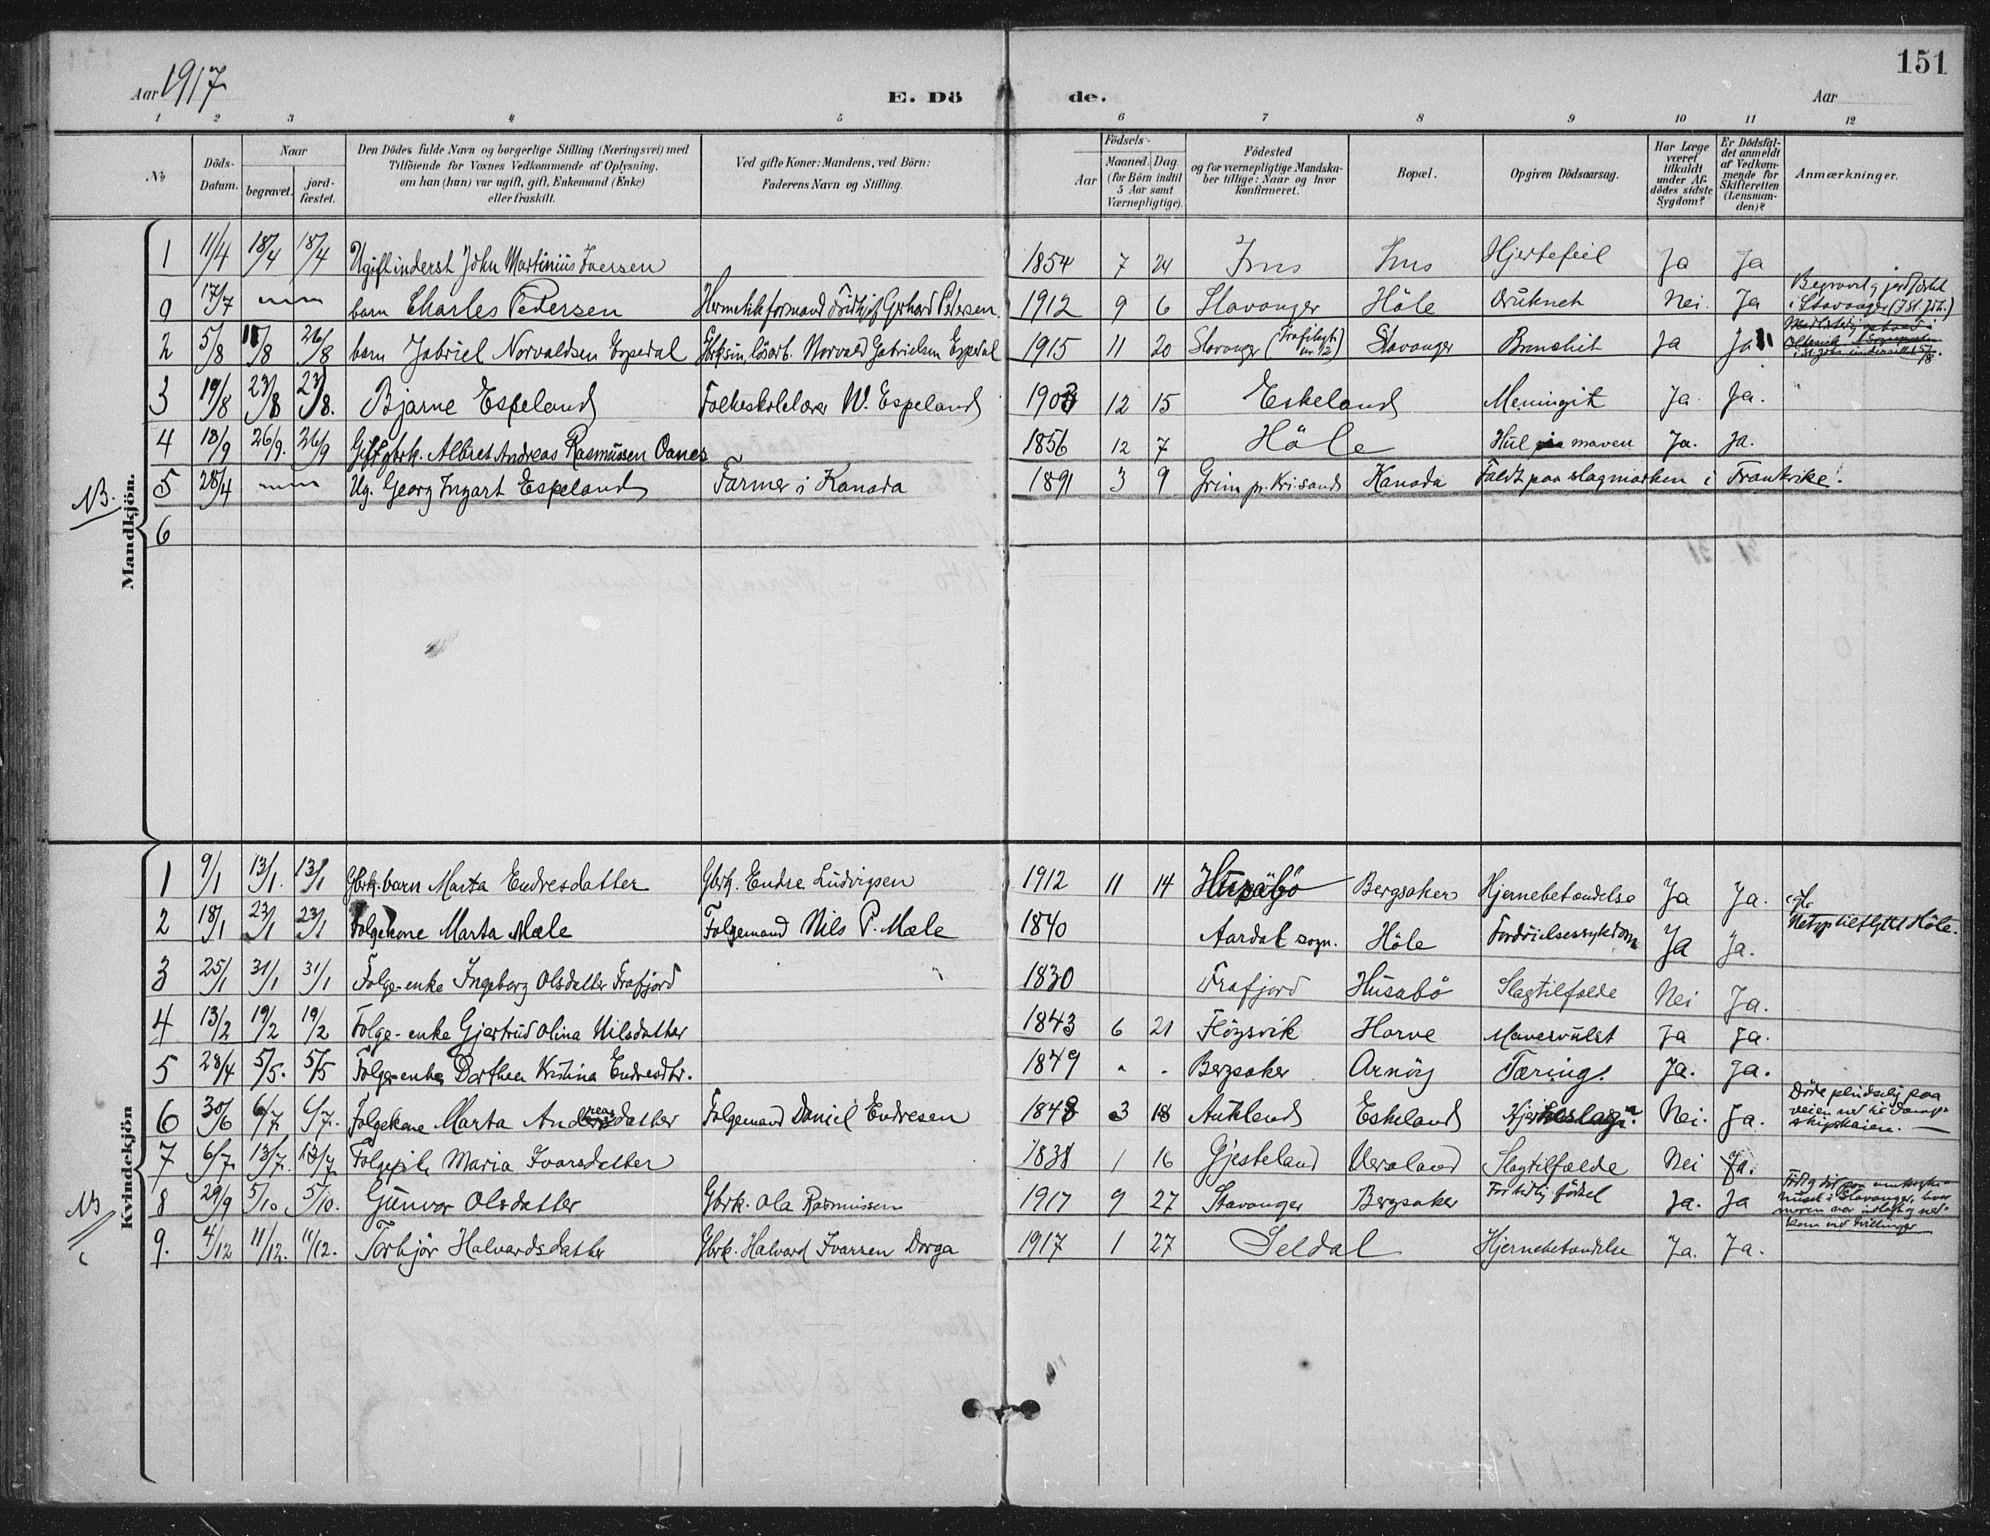 151
Aar 1917
E. Dö de.
Aar
1 2 3 4 5 6 7 8 9 10 11 12
№
Döds-Datum.
Naar
begravet.
jord-fæstet.
Den Dödes fulde Navn og borgerlige Stilling (Næringsvei) med
Tilföiende for Voxnes Vedkommende af Oplysning,
om han (hun) var ugift, gift, Enkemand (Enke)
eller fraskilt.
Ved gifte Koner: Mandens, ved Börn:
Faderens Navn og Stilling.
Födsels-
Aar
Maaned. Dag.
(for Börn indtil
5 Aar samt
Værnepligtige).
Födested
og for værnepligtige Mandska-
ber tillige: Naar og hvor
Konfirmeret.
Bopæl.
Opgiven Dödsaarsag.
Har Læge
været
tilkaldt
under Af-
dödes sidste
Sygdom?
Er Dödsfal-
det anmeldt
af Vedkom-
mende for
Skifteretten
(Lensman-
den)?
Anmærkninger.
Mandkjön.
1 11/4 18/4 18/4 Ugift inderst John Martinius Iversen 1854 7 24 Ims Ims Hjertefeil Ja Ja
0 17/7 barn Charles Petersen Hermetikformand Fridtjof Gerhard Petersen 1912 9 6 Stavanger Höle Druknet Nei. Ja Begravet og jordfæstet
i Stavanger (St. Joh.)
2 5/8 11/8 26/8 barn Jabriel Norvaldsen Espedal Norvald Gabrielsen Espedal 1915 11 20 Stavanger Stavanger Bronchit Ja Ja
3 19/8 23/8 23/8. Bjarne Espeland Folkeskolelærer W. Espeland 1903 12 15 Eskeland Meningit Ja. Ja. "
4 18/9 26/9. 26/9 Gift gbrk. Albret Andreas Rasmussen Oanes 1856 12 7 Höle Hul maven Ja. Ja.
NB. 5 28/4 Ug. Georg Ingart Espeland Farmer i Kanada 1891 3 9 Grim pr. Kr.sand Kanada Faldt paa slagmarken i Frankrike!
6
Kvindekjön
1 9/1 13/1. 13/1 Gbrk. barn Marta Endresdatter Gbrk. Endre Ludvigsen 1912 11 14 Husabö Bergsaker Hjernebetændelse Ja Ja.
2 18/1 23/1 23/1 Folgekone Marta Mæle Folgemand Nils P. Mæle 1840 Aardal sogn. Höle Fordöielsessykdom Ja Ja. Netop tilflyttet Höle.
3 25/1 31/1 31/1 Folge-enke Ingeborg Olsdatter Frafjord 1830 Frafjord Husabö Slagtilfælde Nei Ja.
4 13/2 19/2 19/2 Folge-enke Gjertrud Olina Nilsdatter 1843 6 21 Flögsvik Horve Mavesvulst Ja Ja.
5 28/4 5/5. 5/5 Folge-enke Dorthea Kristina Endresdtr. 1849 " . Bergsaker Arnöy Tæring. Ja. Ja.
6 30/6 6/7 6/7. Folgekone Marta Andreasdatter Folgemand Daniel Endresen 1848 3 18 Aukland Eskeland Hjerteslag. Nei. Ja. Döde pludselig paa
veien ned til damp-
skipskaien.
7 6/7. 13/7. 13/7 Folgepike Maria Ivarsdatter 1838 1 16 Gjesteland Veraland Slagtilfælde Nei Ja.
NB 8 29/9 5/10 5/10. Gunvor Olsdatter Gbrk. Ola Rasmussen 1917 9 27 Stavanger Bergsaker For tidlig födsel Ja. Ja Född og död paa
i Stavanger, hvor
moren var indlagt og ned-
kom med tvillinger
9. 4/12 11/12. 11/12. Torbjör Halvardsdatter Gbrk. Halvard Ivarsen Dorga 1917 1 27 Seldal Hjernebetændelse Ja. Ja.